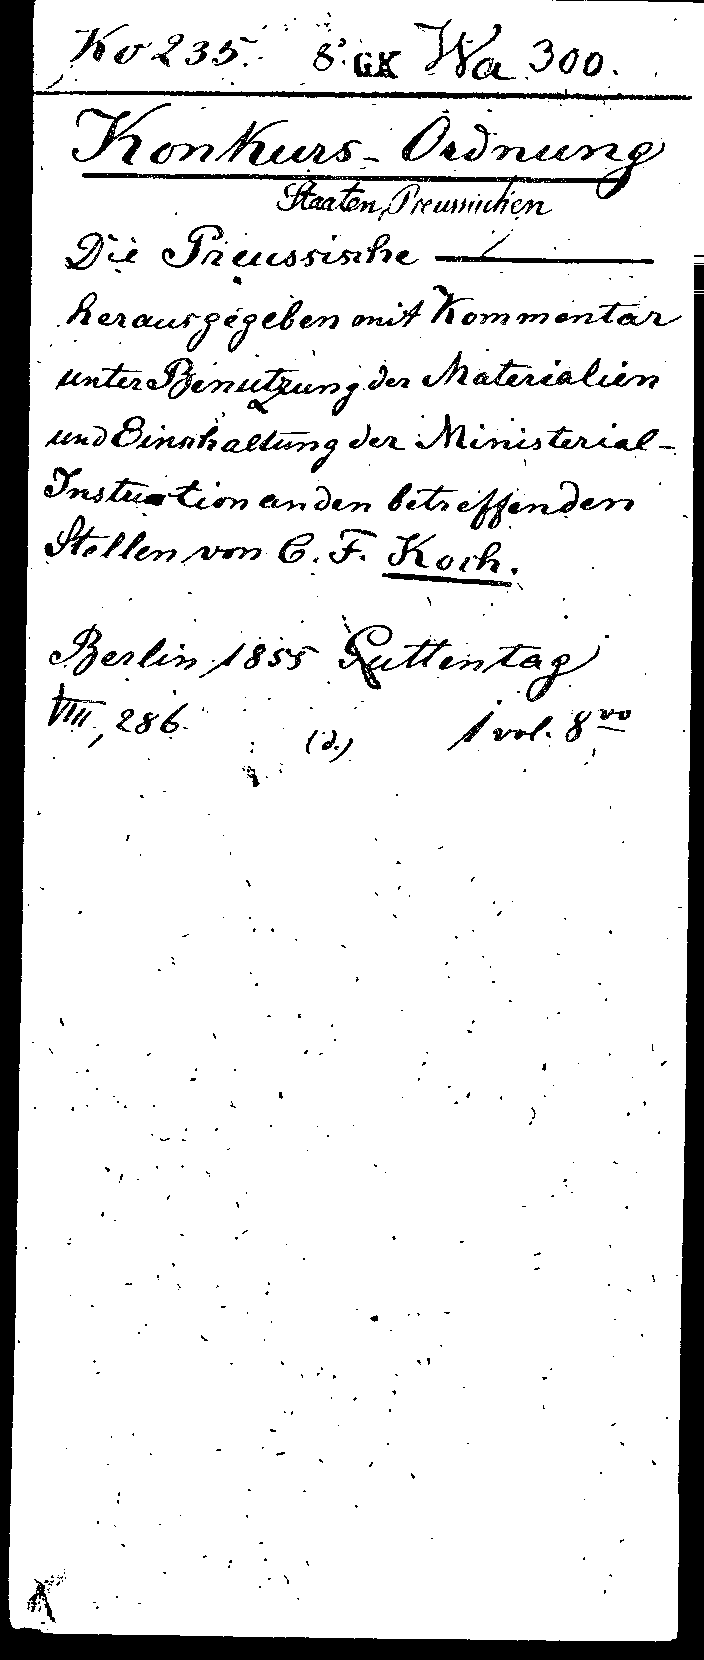 Ko 235. 8° GK Wa 300.
Konkurs-Ordnung
Staaten, Preussischen
Die Preussische —
herausgegeben mit Kommentar
unter Benutzung der Materialien
und Einschaltung der Ministerial-
Instruction an den betreffenden
Stellen von C. F. Koch.
Berlin, 1855 Guttentag
VIII, 286.
(d.) 1 vol. 8vo